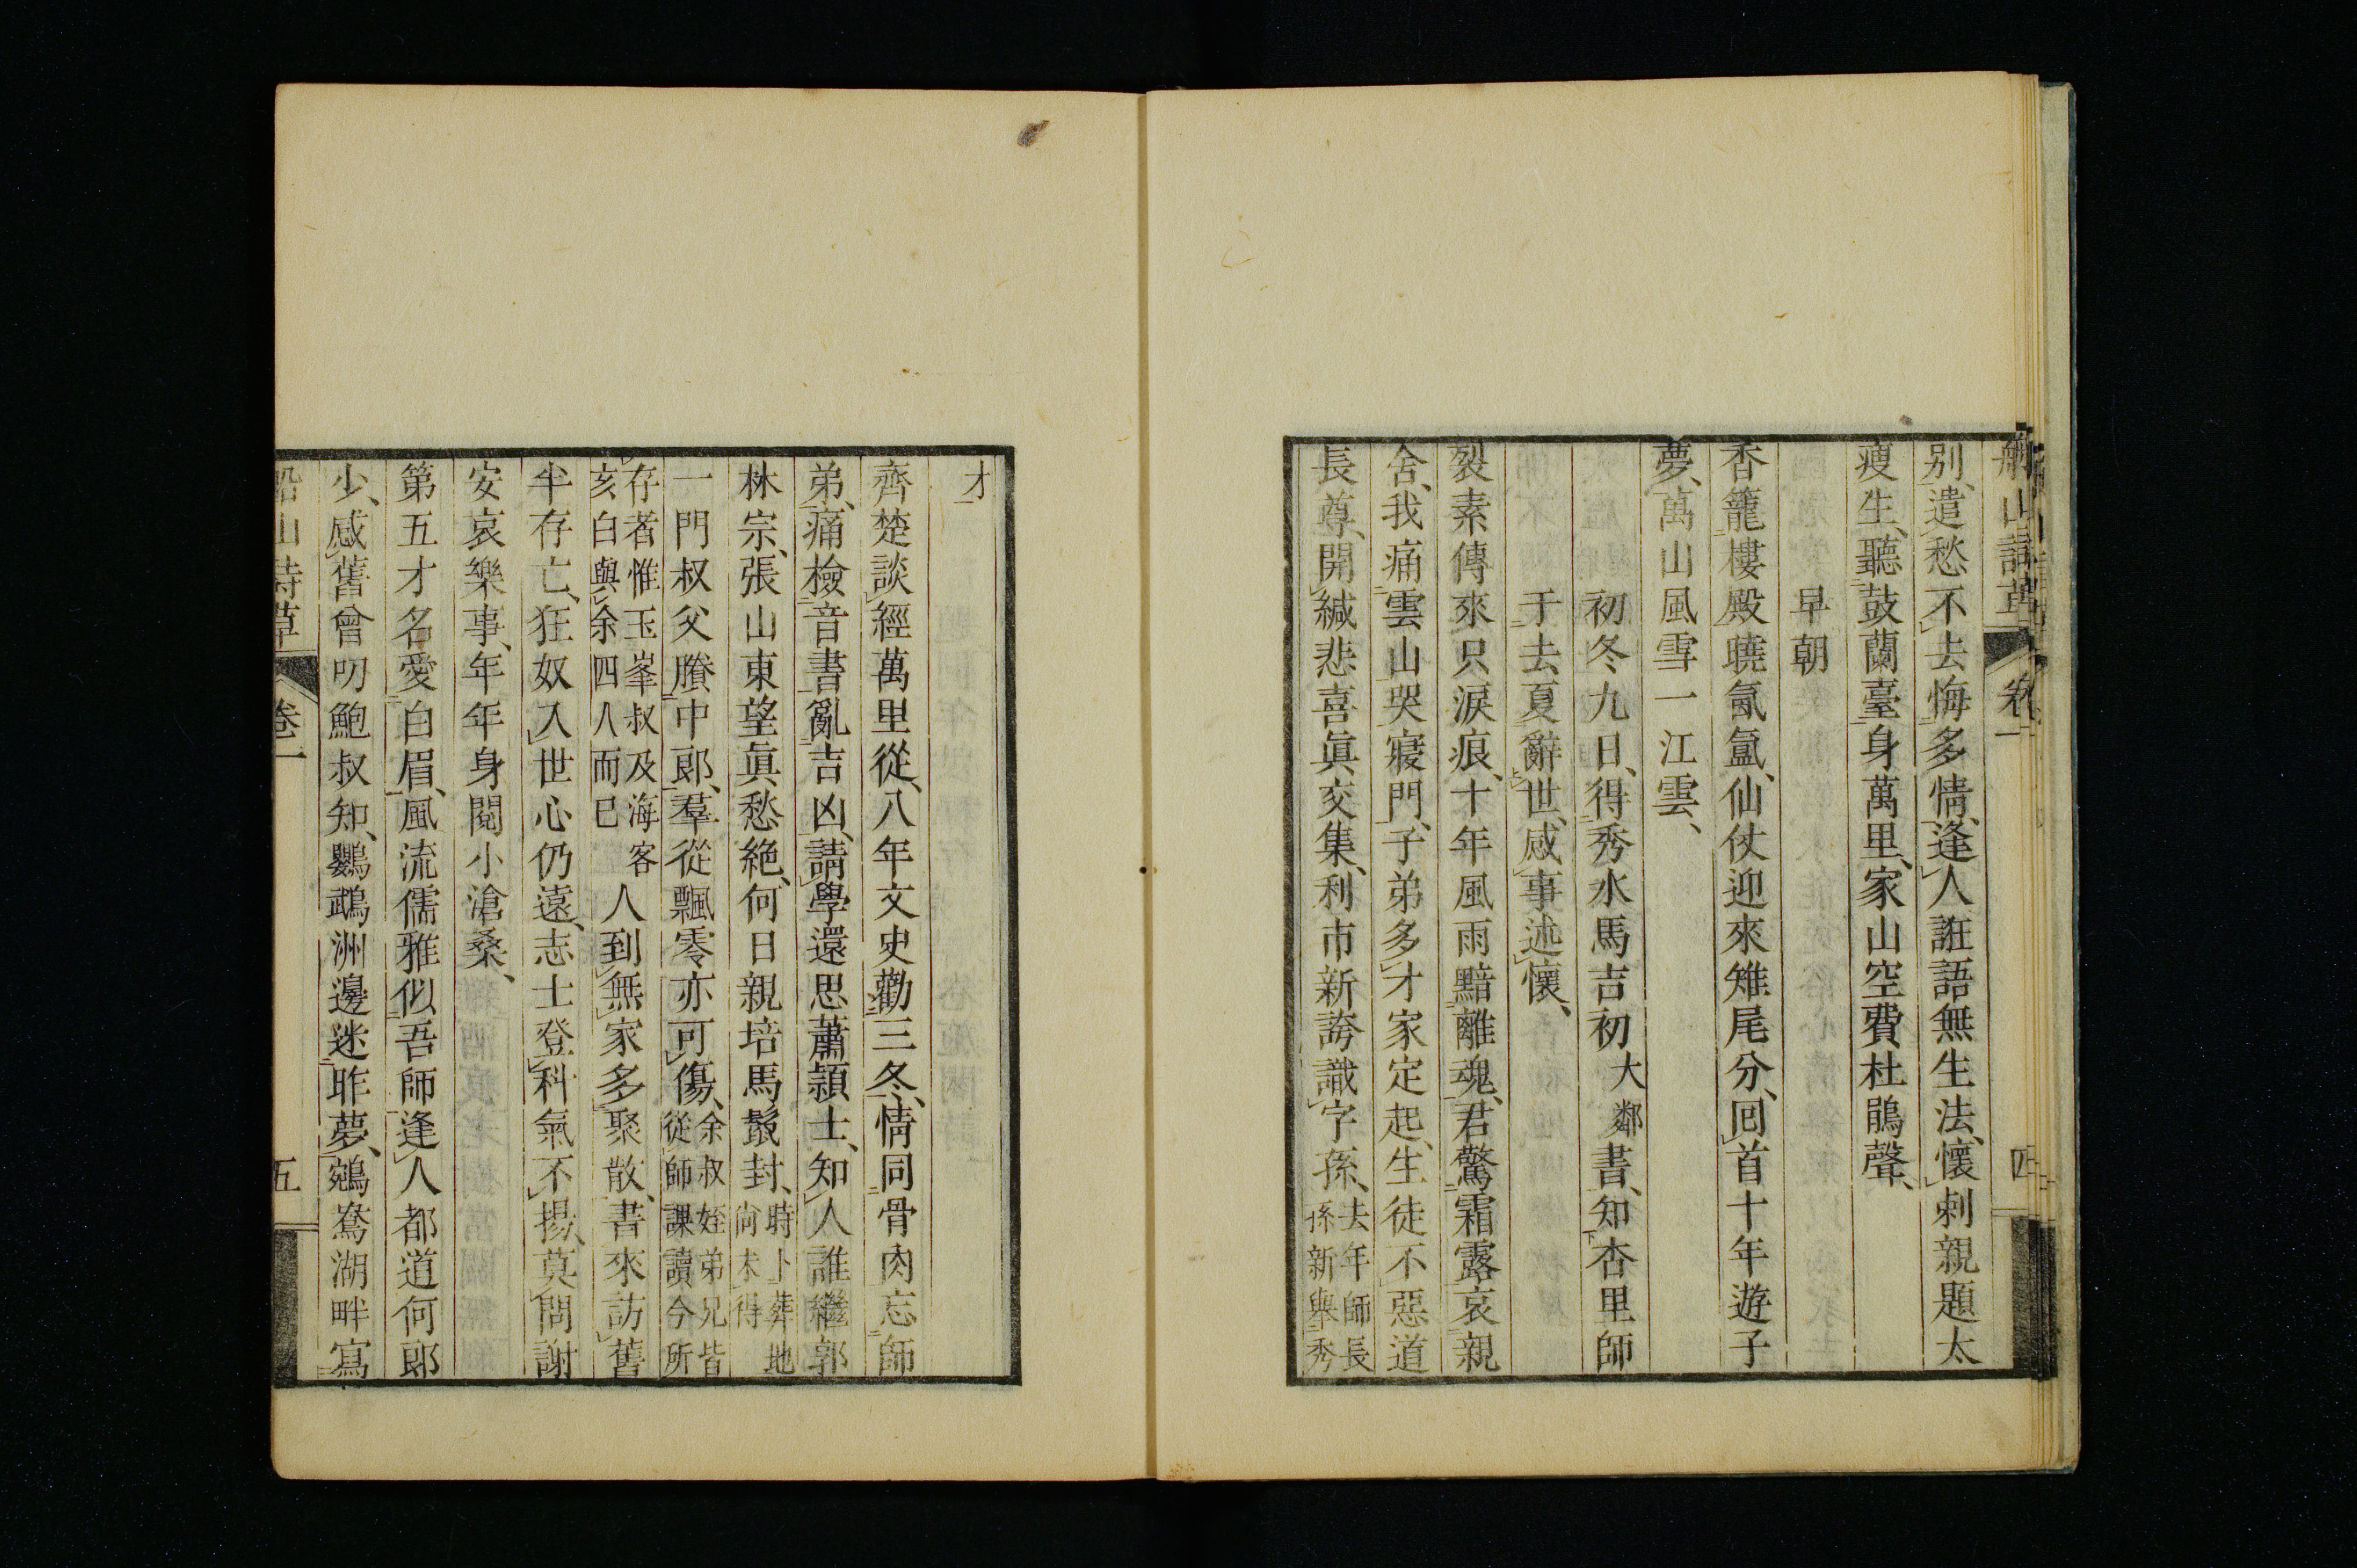 船山詩草 卷一 四
別、遣愁不去悔多情、逢人誑語無生法、懷刺親題太
瘦生、聽鼓蘭臺身萬里、家山空費杜鵑聲、
早朝
香籠樓殿曉氤氳、仙仗迎來雉尾分、回首十年遊子
夢、萬山風雪一江雲、
初冬九日、得秀水馬吉初大鄰書、知杏里師
于去夏辭世、感事述懷、
裂素傳來只淚痕、十年風雨黯離魂、君驚霜露哀親
舍、我痛雲山哭寢門、子弟多才家定起、生徒不惡道
長尊、開緘悲喜眞交集、利市新誇識字孫、去年師長
孫新舉秀
才
齊楚談經萬里從、八年文史勸三冬、情同骨肉忘師
弟、痛檢音書亂吉凶、請學還思蕭穎士、知人誰繼郭
林宗、張山東望眞愁絶、何日親培馬鬛封、時卜葬地
尙未得
一門叔父賸中郞、羣從飄零亦可傷、余叔姪弟兄皆
從師課讀今所
存者惟玉峯叔及海客
亥白與余四人而已
人到無家多聚散、書來訪舊
半存亡、狂奴入世心仍遠、志士登科氣不揚、莫問謝
安哀樂事、年年身閱小滄桑、
第五才名愛白眉、風流儒雅似吾師、逢人都道何郞
少、感舊曾叨鮑叔知、鸚鵡洲邊迷昨夢、鵷鴦湖畔寫
船山詩草 卷一 五